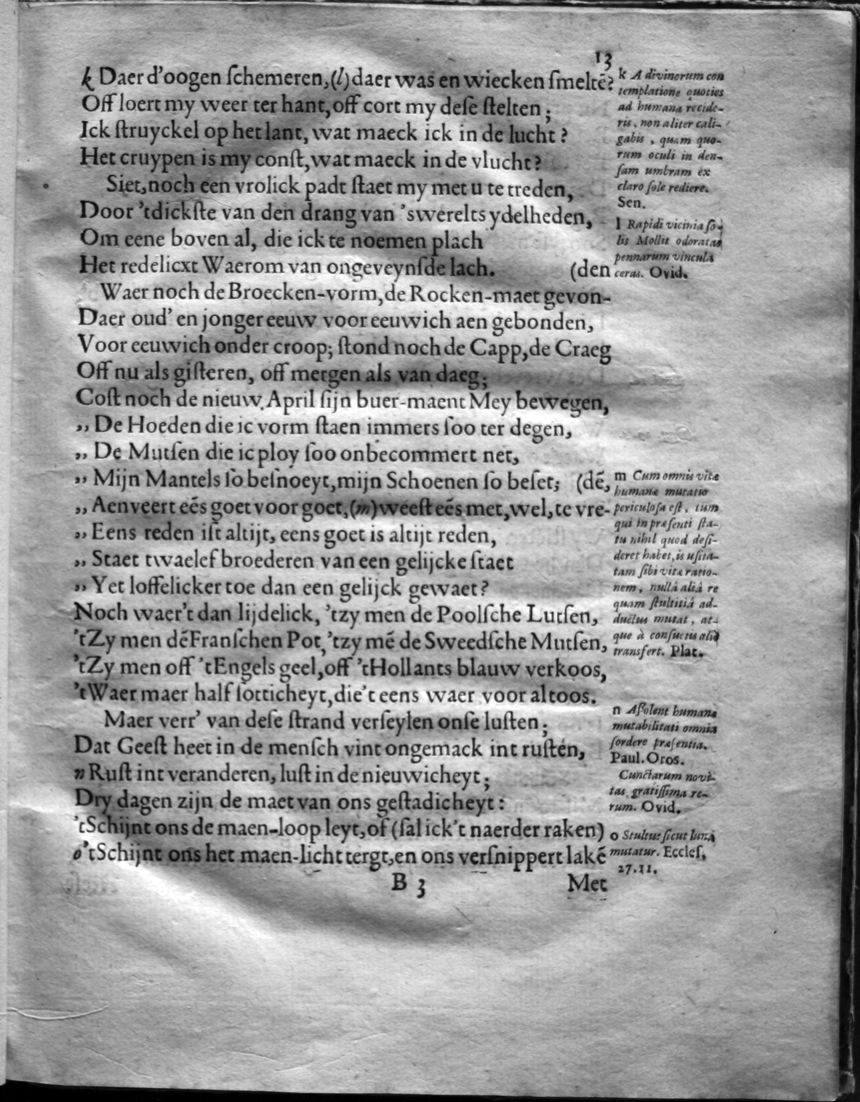 13
k Daer d'oogen schemeren,(l)daer was en wiecken smeltē?
Off loert my weer ter hant, off cort my dese stelten;
Ick struyckel op het lant, wat maeck ick in de lucht?
Het cruypen is my const, wat maeck in de vlucht?
Siet, noch een vrolick padt staet my met u te treden,
Door 'tdickste van den drang van 'swerelts ydelheden,
Om eene boven al, die ick te noemen plach
Het redelicxt Waerom van ongeveynsde lach. (den
Waer noch de Broecken-vorm, de Rocken-maet gevon-
Daer oud' en jonger eeuw voor eeuwich aen gebonden,
Voor eeuwich onder croop; stond noch de Capp, de Craeg
Off nu als gisteren, off mergen als van daeg;
Cost noch de nieuw April sijn buer-maent Mey bewegen,
,, De Hoeden die ic vorm staen immers soo ter degen,
,, De Mutsen die ic ploy soo onbecommert net,
,, Mijn Mantels so besnoeyt, mijn Schoenen so beset; (dē,
,, Aenveert eēs goet voor goet,(m)weest eēs met, wel, te vre-
,, Eens reden ist altijt, eens goet is altijt reden,
,, Staet twaelef broederen van een gelijcke staet
,, Yet loffelicker toe dan een gelijck gewaet?
Noch waer't dan lijdelick, 'tzy men de Poolsche Lutsen,
'tZy men dē Franschen Pot, 'tzy mē de Sweedsche Mutsen,
'tZy men off 'tEngels geel, off 'tHollants blauw verkoos,
'tWaer maer half sotticheyt, die't eens waer voor altoos.
Maer verr' van dese strand verseylen onse lusten;
Dat Geest heet in de mensch vint ongemack int rusten,
n Rust int veranderen, lust in de nieuwicheyt;
Dry dagen zijn de maet van ons gestadicheyt:
'tSchijnt ons de maen-loop leyt, of (sal ick't naerder raken)
o 'tSchijnt ons het maen-licht tergt, en ons versnippert lakē
B 3 Met
k A divinorum con
templatione quoties
ad humana recide-
ris, non aliter cali-
gabis, quam quo-
rum oculi in den-
sam umbram ex
claro sole rediere.
Sen.
l Rapidi vicinia so-
lis Mollit odoratas
pennarum vincula
ceras. Ovid.
m Cum omnis vitæ
humanæ mutatio
periculosa est, tum
qui in præsenti sta-
tu nihil quod desi-
deret habet, is usita-
tam sibi vitæ ratio-
nem, nullâ aliâ re
quam stultitiâ ad-
ductus mutat, at-
que à consueta aliò
transfert. Plat.
n Assolent humanæ
mutabilitati omnia
sordere præsentia.
Paul. Oros.
Cunctarum novi-
tas gratissima re-
rum. Ovid.
o Stultus sicut luna
mutatur. Eccles.
27.11.